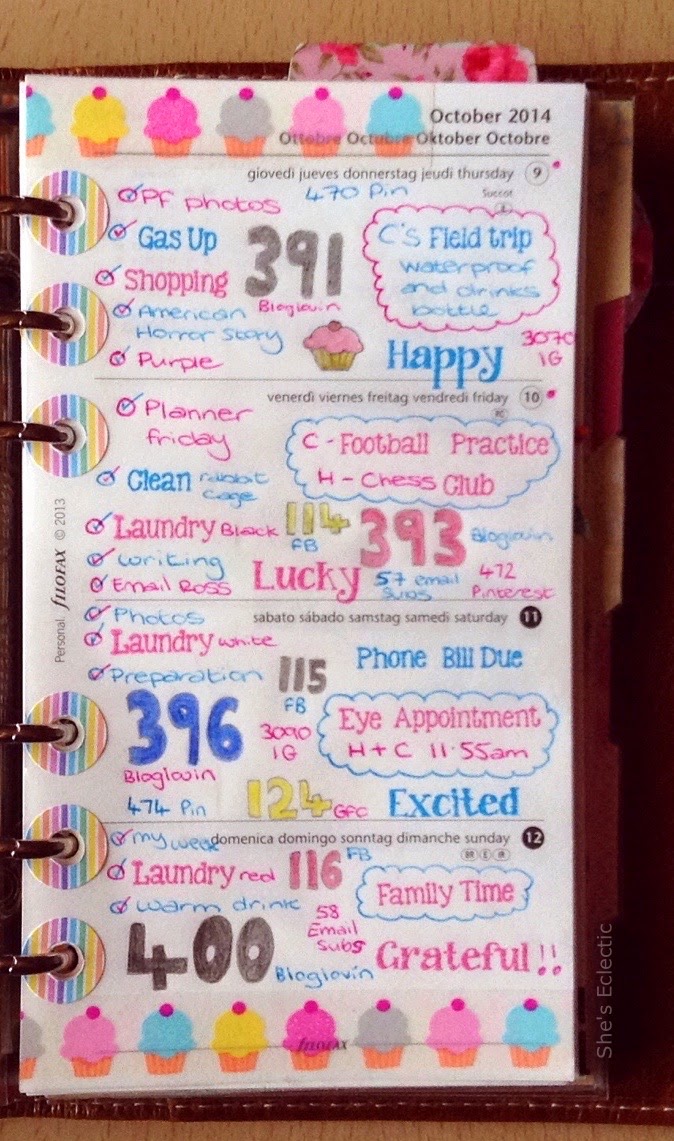 October 2014
Ottobre Octubre Oktober Octobre
giovedì jueves donnerstag jeudi thursday 9
PF photos
470 Pin
Succot
Gas Up
391
Bloglovin
C's Field trip
waterproof
and drinks
bottle
Shopping
American
Horror Story
Purple
Happy
3070
IG
venerdì viernes freitag vendredi friday 10
Planner
friday
C - Football Practice
H - Chess Club
Clean rabbit
cage
Laundry Black
114
FB
393
Bloglovin
writing
Email Ross
Lucky
57 email
Subs
472
Pinterest
Personal. filofax © 2013
sabato sábado samstag samedi saturday 11
Photos
Laundry white
Preparation
115
FB
Phone Bill Due
396
Bloglovin
3090
IG
Eye Appointment
H + C 11.55am
474 Pin
124 GFC
Excited
domenica domingo sonntag dimanche sunday 12
my week
Laundry red
116
FB
Family Time
warm drink
58
Email
Subs
400
Bloglovin
Grateful!!
filofax
She's Eclectic